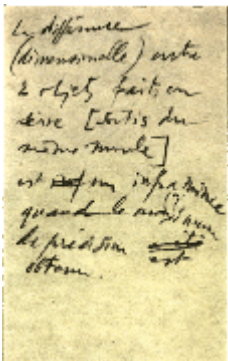 La différence
(dimensionnelle) entre
2 objets faits en
série [sortis du
même moule]
est un infra mince
quand le maximum
de précision
est
obtenu.